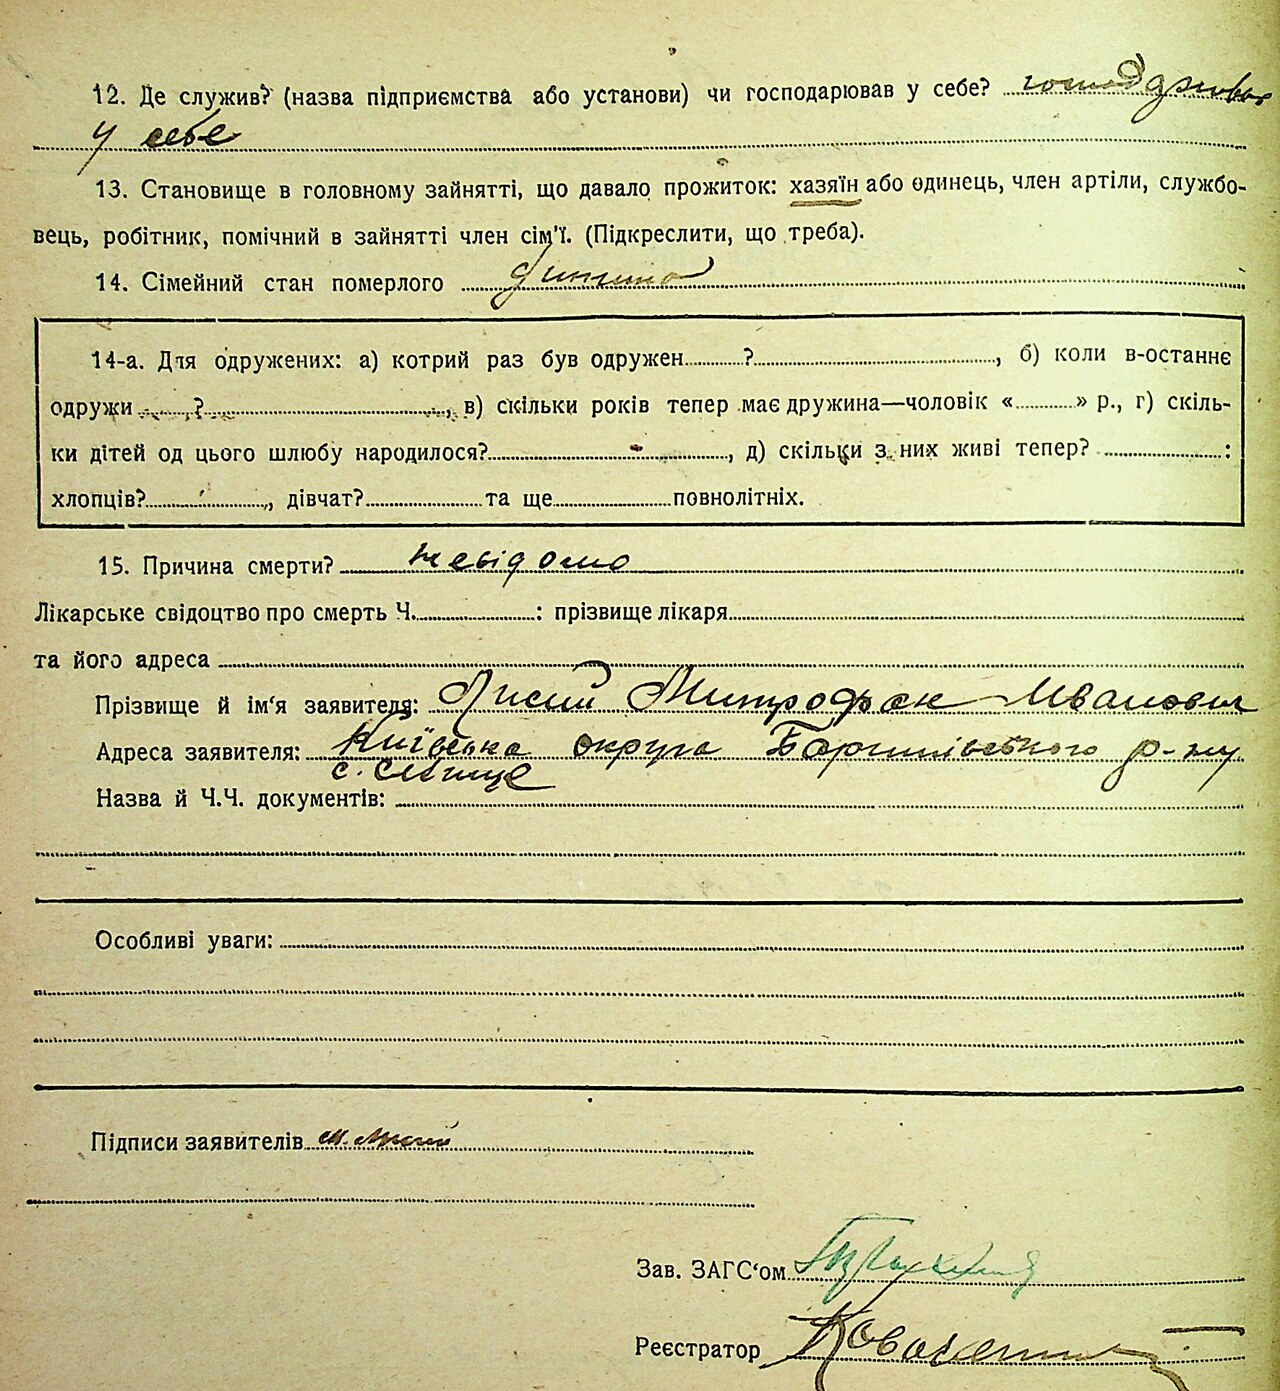 12. Де служив? (назва підприємства або установи) чи господарював у себе? господарював
у себе
13. Становище в головному зайнятті, що давало прожиток: хазяїн або одинець, член артілі, службо-
вець, робітник, помічний в зайнятті член сім'ї. (Підкреслити, що треба).
14. Сімейний стан померлого дитина
14-а. Для одружених: а) котрий раз був одружен ? , б) коли в-останнє
одружи ? , в) скільки років тепер має дружина—чоловік « » р., г) скіль-
ки дітей од цього шлюбу народилося? , д) скільки з них живі тепер? :
хлопців? , дівчат? та ще повнолітніх.
15. Причина смерти? невідома
Лікарське свідоцтво про смерть Ч. : прізвище лікаря
та його адреса
Прізвище й ім'я заявителя: Лисий Митрофан Иванович
Адреса заявителя: Київська округа р-ну
с.
Назва й Ч.Ч. документів:
Особливі уваги:
Підписи заявителів М. Лисий
Зав. ЗАГС'ом
Реєстратор